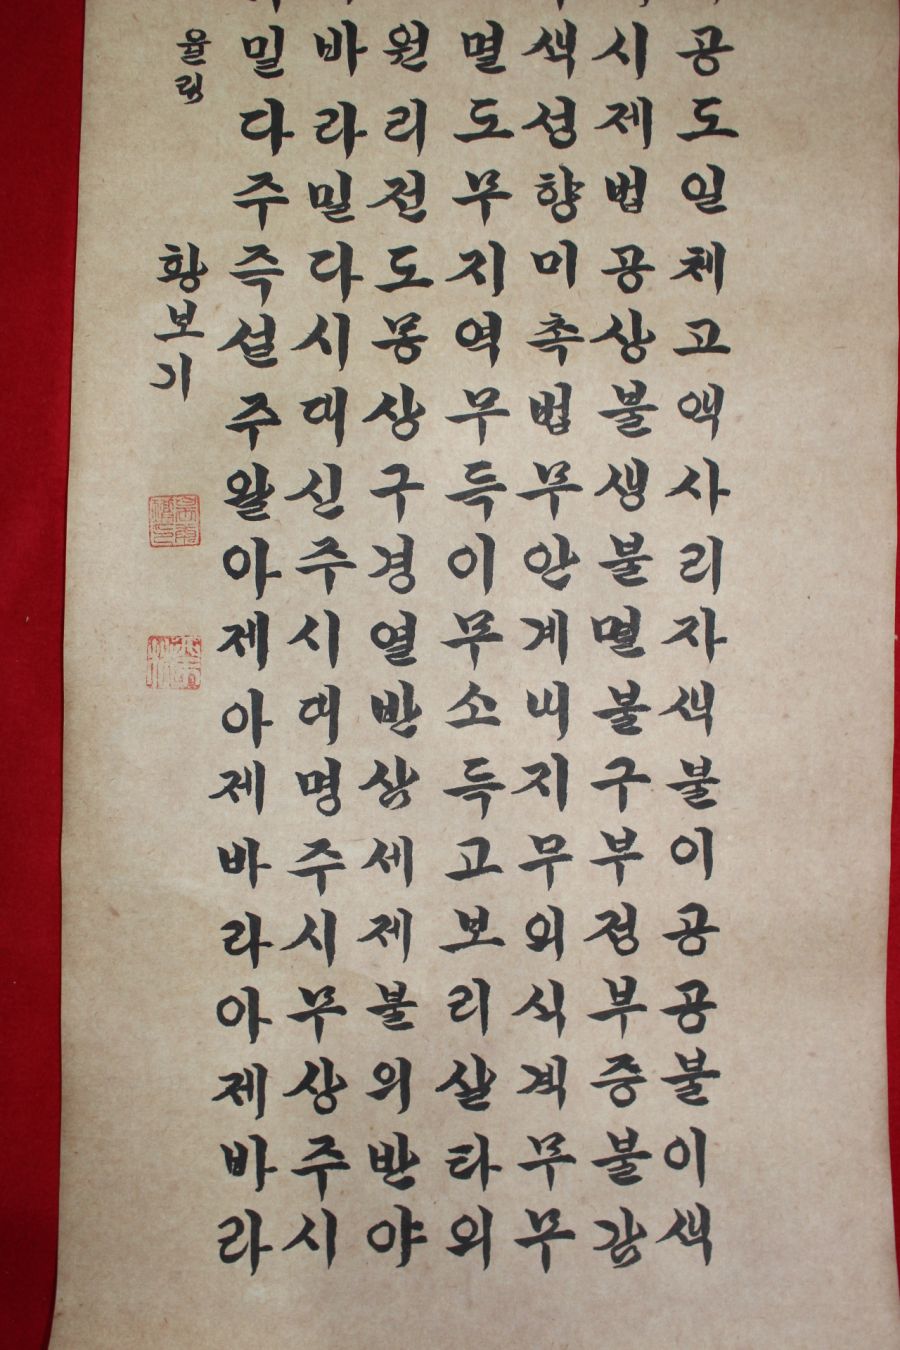 공도일체고액사리자색불이공공불이색
시제법공상불생불멸불구부정부증불감
색성향미촉법무안계내지무의식계무무
멸도무지역무득이무소득고보리살타의
원리전도몽상구경열반삼세제불의반야
바라밀다시대신주시대명주시무상주시
밀다주즉설주왈아제아제바라아제바라
율림 황보기